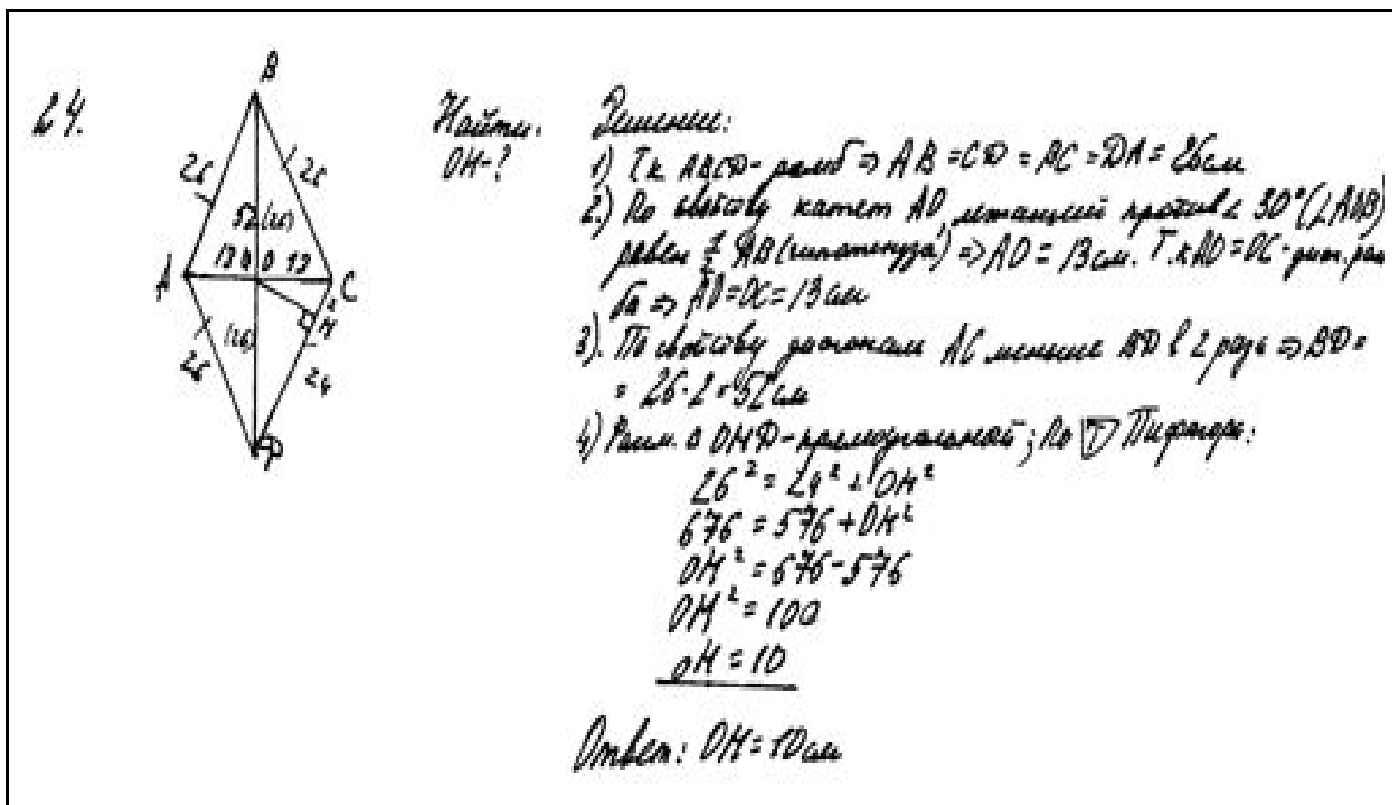 24.
B
26
26
52 (26)
13
O
13
A
C
2
H
(26)
26
24
D
Найти:
OH-?
Решение:
1) Т.к ABCD-ромб ⇒ AB = CD = BC = DA = 26см
2.) По свойству катет AO, лежащий против ∠ 30° (∠AOB)
равен ½ AB (гипотенуза) ⇒ AO = 13см. Т.к AO = OC - диаг. ром
ба ⇒ AO = OC = 13 см
3). По свойству диагонали AC меньше BD в 2 раза ⇒ BD =
= 26 · 2 = 52 см
4) Рассм. Δ OHD - прямоугольный; По Т Пифагора:
26² = 24² + OH²
676 = 576 + OH²
OH² = 676 - 576
OH² = 100
OH = 10
Ответ: OH = 10 см